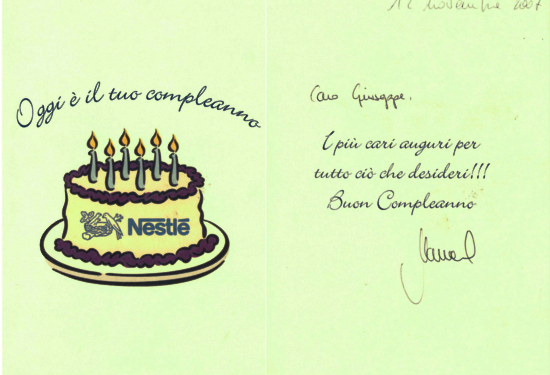 12 novembre 2007
Oggi è il tuo compleanno
Nestlé
Caro Giuseppe,
I più cari auguri per
tutto ciò che desideri!!!
Buon Compleanno